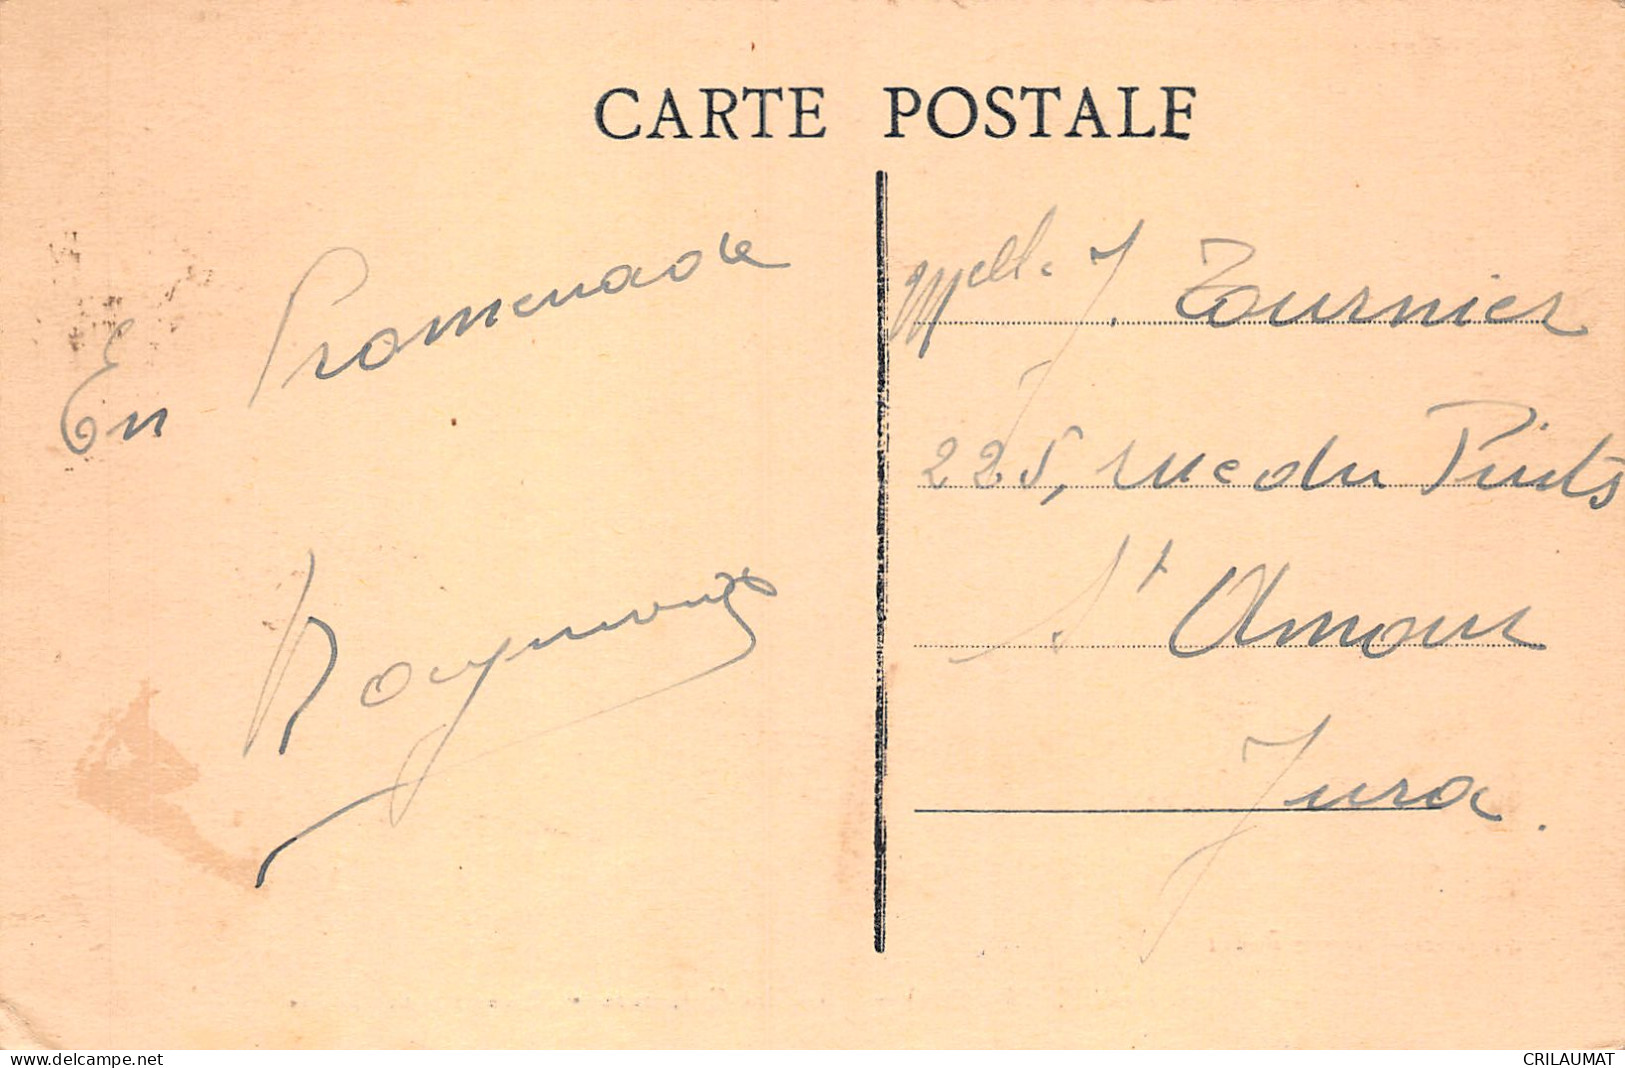 CARTE POSTALE
En Promenade
Melle J. Tournier
225, rue du Puits
St Amour
Jura.
delcampe.net
CRILAUMAT